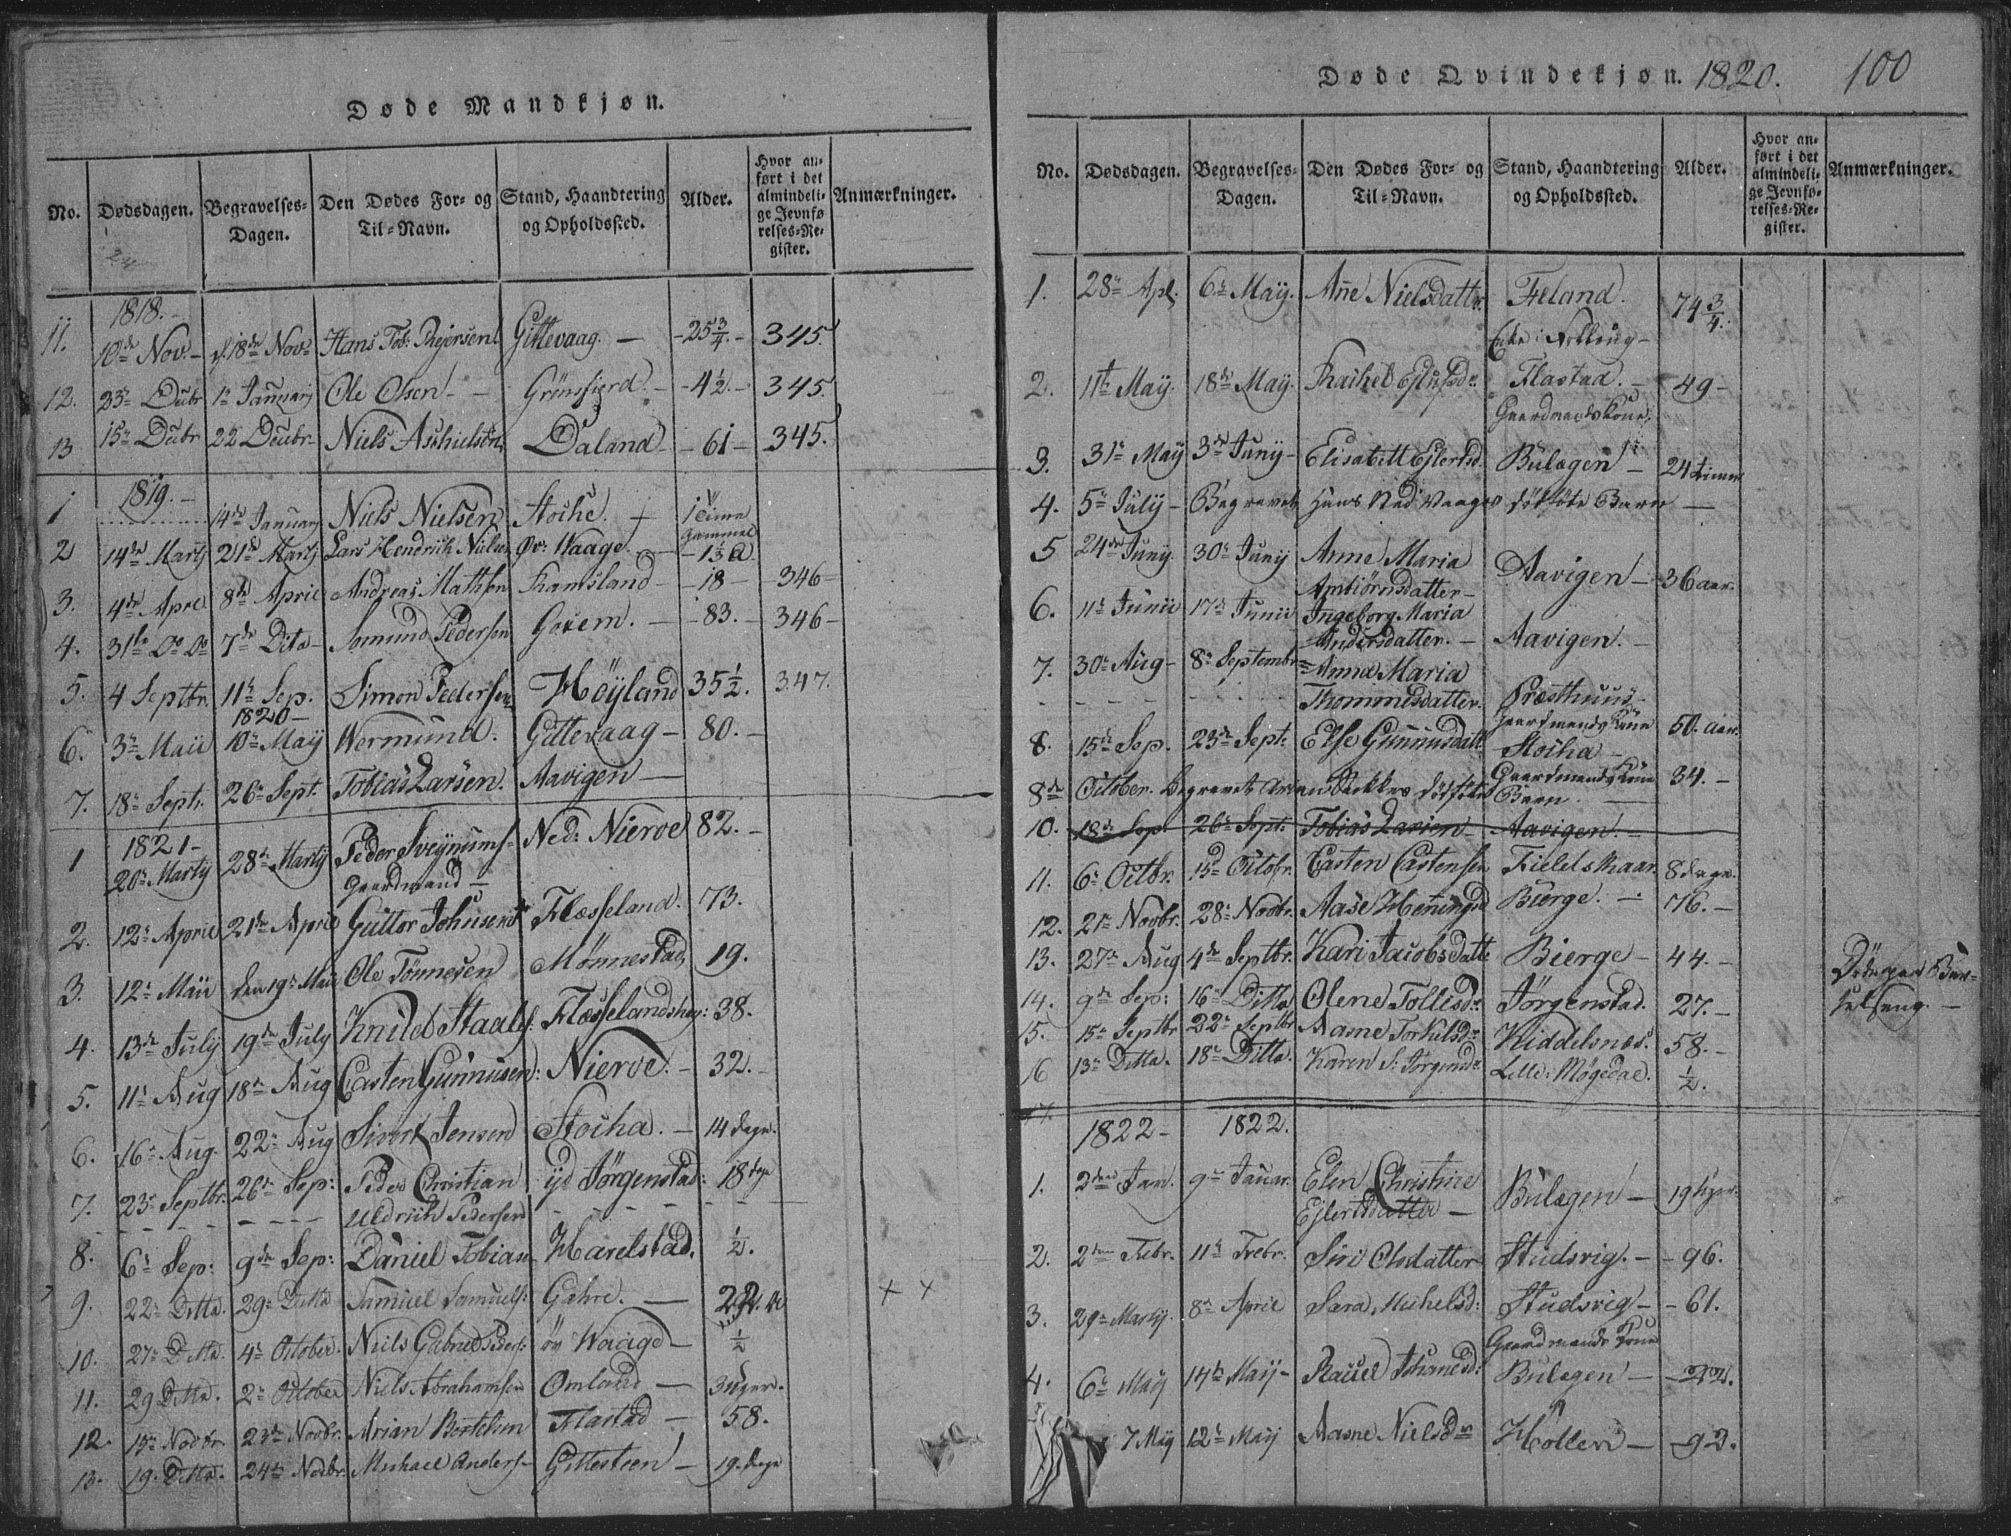 Døde Mandkjøn.
No. Dødsdagen. Begravelses-Dagen. Den Dødes For- og Til-Navn. Stand, Haandtering og Opholdssted. Alder. Hvor anført i det almindelige Jevnførelses-Register. Anmærkninger.
1818.
11. 10de Nov. d. 18de Nov. Hans Tob: Reiersen Gittevaag. 25 3/4 345.
12. 23de Dcbr 1te Januarij Ole Olsen Grönsfierd. 4 1/2 345.
13 15de Dcbr 22 Decbr. Niels Daland 61 345.
1819.
1 14de Januarj Niels Nielsen Stoche. 1 time gammel
2 14de Martj 21de Martj Lars Hendrich Niels Øv: Waage 1 3/4 a.
3. 4de April 8de April Andreas Mathsen Kamsland 18 346
4. 31te Do Do 7de Dito Somund Pedersen Goxem. 83. 346
5. 4 Septbr. 11te Sep. Simon Pedersen Höÿland 35 1/2. 347.
1820
6. 3de Maii 10de Maÿ Wermund. Gittevaag 80.
7. 18de Septr. 26de Sept. Tobias Larsen. Aavigen
1821
1 20de Martÿ 28de Martÿ Peder Sveÿnums: Ned: Nierve 82.
Gaardmand
2. 12te April 21de April Guttor Johnsen Flæsseland. 73.
3. 12te Maii den 19de Maii Ole Tönnesen Mönnestad, 19.
4. 13de Julÿ 19de Julÿ Knud Staals: Flæsselandsheÿ: 38.
5. 11te Aug 18de Aug Casten Gunnusen: Nierve. 32.
6. 16de Aug. 22de Aug Sivert Jensen Stocha. 14 dage.
7. 23de Septbr. 26de Sep: Peder Christian ÿd Jörgenstad: 18 dage
Uldrich Pedersen
8. 6te Sep: 9de Sep: Daniel Tobiasen Harelstad. 1/2.
9. 22de Ditto. 29de Ditto Samuel Samuels: Gahre. + +
10. 27de Ditto. 4de October. Niels Gabriel Peders: öv Waage 1/2
11. 29 Ditto. 2de October Niels Abrahamsen Omland 3 uger.
12. 15de Novbr. 23de Novbr. Arian Bertelsen Flastad 58.
13. 19. Ditto. 24de Novbr. Michael Anders: Gittesteen 19. dage
Døde Qvindekjøn. 1820. 100
No. Dødsdagen. Begravelses-Dagen. Den Dødes For- og Til-Navn. Stand, Haandtering og Opholdssted. Alder. Hvor anført i det almindelige Jevnførelses-Register. Anmærkninger.
1. 28de Apl. 6te Maÿ. Ane Nielsdatter Feland. 74 3/4.
2. 11te Maÿ. 18de Maÿ. Rachel Flastad. 49
Gaardmands Kone
3. 31te Maÿ 3de Junÿ Elisabett Ejlertsd. Bulægen 24 timer
4. 5te Julÿ Begravet Hans Ned Vaages dödföte Barn
5 24de Junÿ. 30te Junÿ Anne Maria Aavigen 36 aar.
Ambiörnsdatter
6. 11te Junii 17de Junii Ingeborg Maria
Andersdatter. Aavigen.
7. 30te Aug 8de Septembr Anna Maria
Thommesdatter. Præsthuus
Gaardmands Kone
8. 15de Sep. 23de Sept: Else Gunnusdatt: Stocha 50. aar.
8de October. Begravet Arian dödföte Barn. Gaardmands Kone 34.
10. 18de Sep. 26de Sept: Tobias Larsen Aavigen.
11. 6te Octbr. 15de Octobr. Casten Castensen Fieldskaar. 8 dage.
12. 21de Novbr. 28de Novbr. Aase Henningsd Bierge. 76.
13. 27de Aug 4de Septbr. Kari Jacobsdatt: Bierge 44. Döde paa Bar-
14. 9de Sep: 16de Ditto Olene Tollisdr Jörgenstad. 27. selseng.
15. 15de Septbr 22de Septbr Aasne Torkilsdr Kiddelsnæs. 58.
16 13de Ditto. 18de Ditto. Karen S: Jörgensdr Lille: Mögedal. 1/2.
17.
1822 1822.
1. 2den Jan. 9de Januar. Elen Christine Bulægen 19 Uger.
Ejlertsdatter
2. 2den Febr. 11te Febr. Siri Olsdatter Studsvig. 96.
3. 29de Martÿ. 8de April Sara Michelsd: Studsvig 61.
Gaardmands Kone
4. 6te Maÿ 14de Maÿ Rachel Bulægen 22.
7 Maÿ 12te Maÿ Aasne Nielsdr Hollen 92.